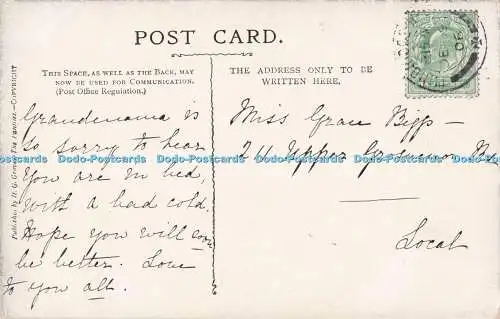 POST CARD.
THIS SPACE, AS WELL AS THE BACK, MAY
NOW BE USED FOR COMMUNICATION.
(Post Office Regulation.)
THE ADDRESS ONLY TO BE
WRITTEN HERE.
Grandmama is
so sorry to hear
you are in bed,
with a bad cold.
Hope you will soon
be better. Love
to you all.
Miss Grace Bigg
24 Upper Grosvenor
Local
Dodo-Postcards Dodo-Postcards Dodo-Postcards Dodo-Postcards Dodo-Postcards